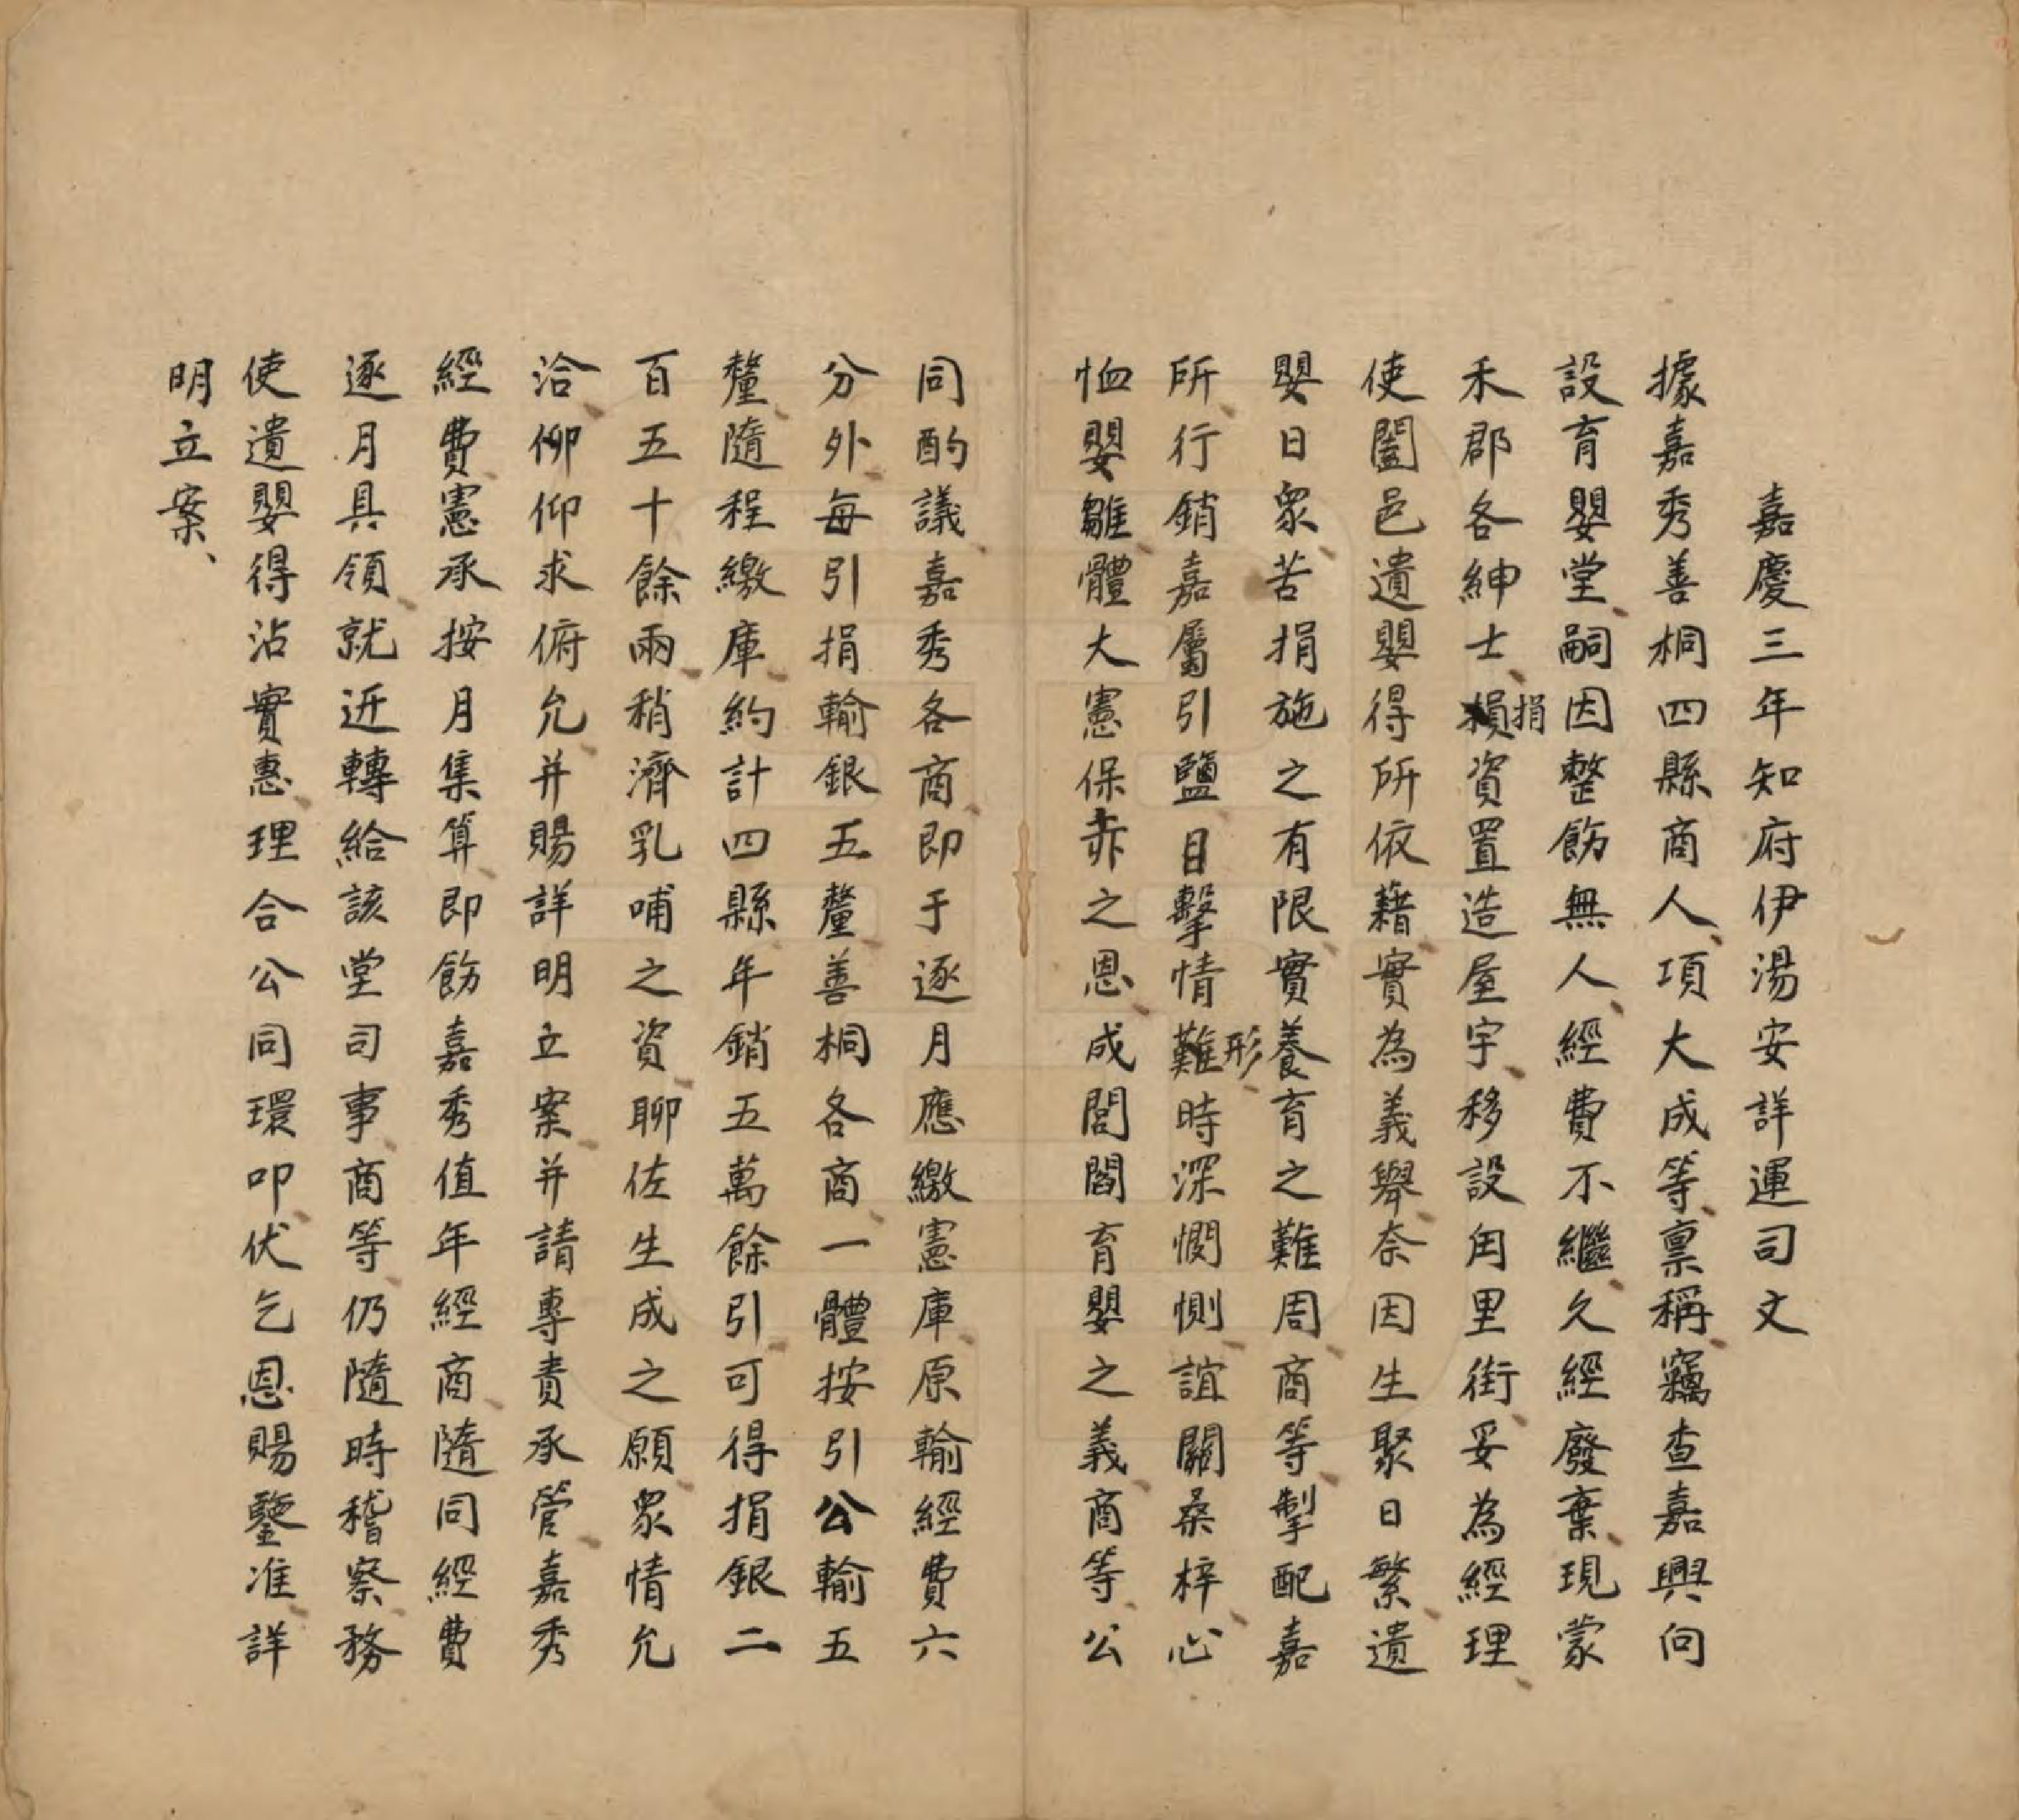 嘉慶三年知府伊湯安詳運司文
據嘉秀善桐四縣商人、項大成等、稟稱、竊查嘉興向
設育嬰堂、嗣因整飭無人、經費不繼、久經廢棄、現蒙
禾郡各紳士、損捐資置造屋宇、移設甪里街、妥為經理、
使闔邑遺嬰得所依藉、實為義舉、奈因生聚日繁、遺
嬰日眾、苦捐施之有限、實養育之難周、商等、掣配嘉
所、行銷嘉屬引鹽、目擊情難形、時深憫惻、誼關桑梓、心
恤嬰雛、體大憲保赤之恩、成閭閻育嬰之義、商等、公
同酌議、嘉秀各商、即于逐月應繳憲庫、原輸經費六
分外、每引捐輸銀五釐、善桐各商、一體按引公輸五
釐、隨程繳庫、約計四縣年銷五萬餘引、可得捐銀二
百五十餘兩、稍濟乳哺之資、聊佐生成之願、眾情允
洽、仰仰求俯允、并賜詳明立案、并請專責承管、嘉秀
經費、憲承按月集算、即飭嘉秀值年經商、隨同經費
逐月具領、就近轉給該堂司事、商等、仍隨時稽察、務
使遺嬰得沾實惠、理合公同環叩、伏乞恩賜鑒准、詳
明立案、